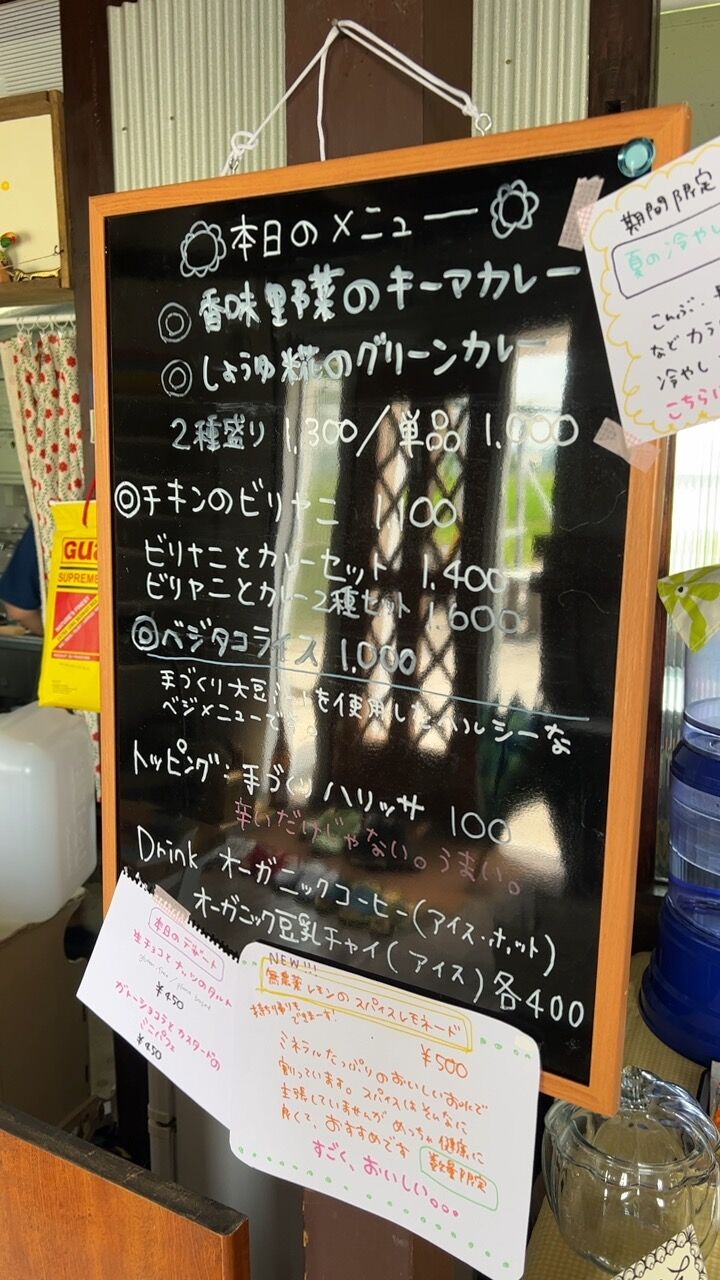 本日のメニュー
◎ 香味野菜のキーマカレー
◎ しょうゆ糀のグリーンカレー
2種盛り 1,300/単品 1,000
◎チキンのビリヤニ 1100
ビリヤニとカレーセット 1,400
ビリヤニとカレー2種セット 1,600
◎ベジタコライス 1,000
手づくり大豆ミートを使用したヘルシーな
ベジメニューです。
トッピング:手づくりハリッサ 100
辛いだけじゃない。うまい。
Drink オーガニックコーヒー(アイス・ホット)
オーガニック豆乳チャイ(アイス)各400
期間限定
夏の冷やし
こんぶ、
などカラ
冷やし
こちらは
本日のデザート
生チョコとナッツのタルト
gluten free / plant based
¥450
ガトーショコラとカスタードの
ミニパフェ
¥450
NEW!!!
無農薬レモンのスパイスレモネード
持ち帰りも
できまーす!
¥500
ミネラルたっぷりのおいしいお水で
割っています。スパイスはそんなに
主張していませんがめっちゃ健康に
良くて、おすすめです
数量限定
すごく、おいしい。。。
SUPREME